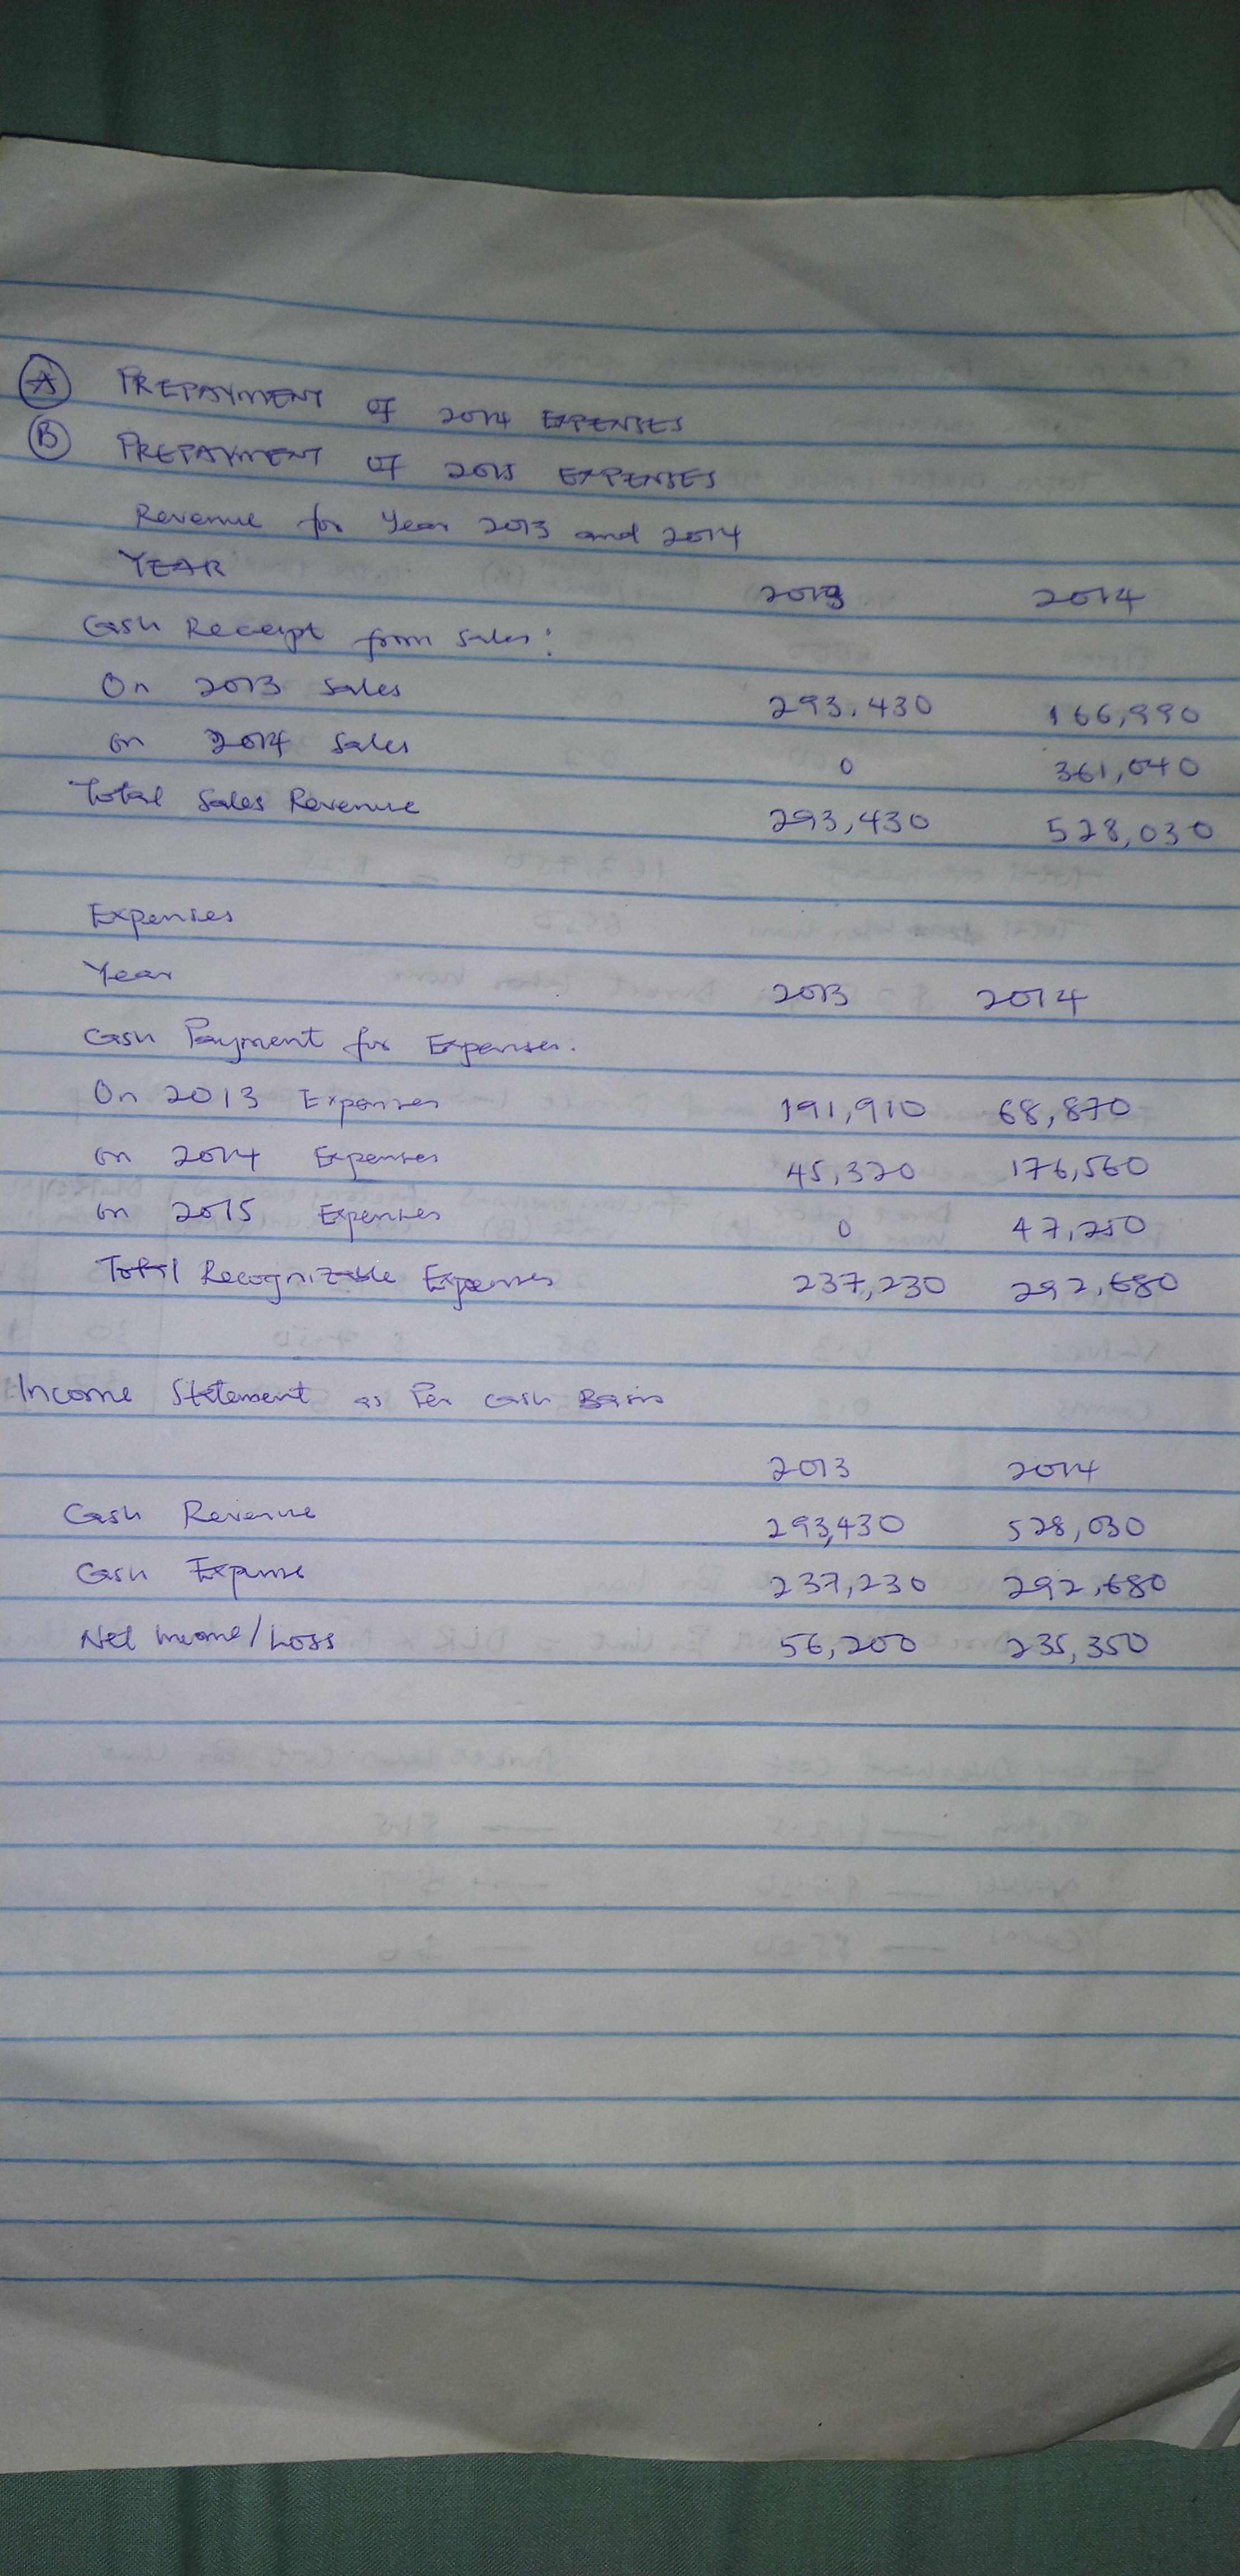 A PREPAYMENT OF 2014 EXPENSES
B PREPAYMENT OF 2015 EXPENSES
Revenue for Year 2013 and 2014
YEAR 2013 2014
Cash Receipt from Sales:
On 2013 Sales 293,430 166,990
on 2014 Sales 0 361,040
Total Sales Revenue 293,430 528,030
Expenses
Year 2013 2014
Cash Payment for Expenses:
On 2013 Expenses 191,910 68,870
on 2014 Expenses 45,320 176,560
on 2015 Expenses 0 47,250
Total Recognizable Expenses 237,230 292,680
Income Statement as Per cash Basis
2013 2014
Cash Revenue 293,430 528,030
Cash Expense 237,230 292,680
Net Income/Loss 56,200 235,350